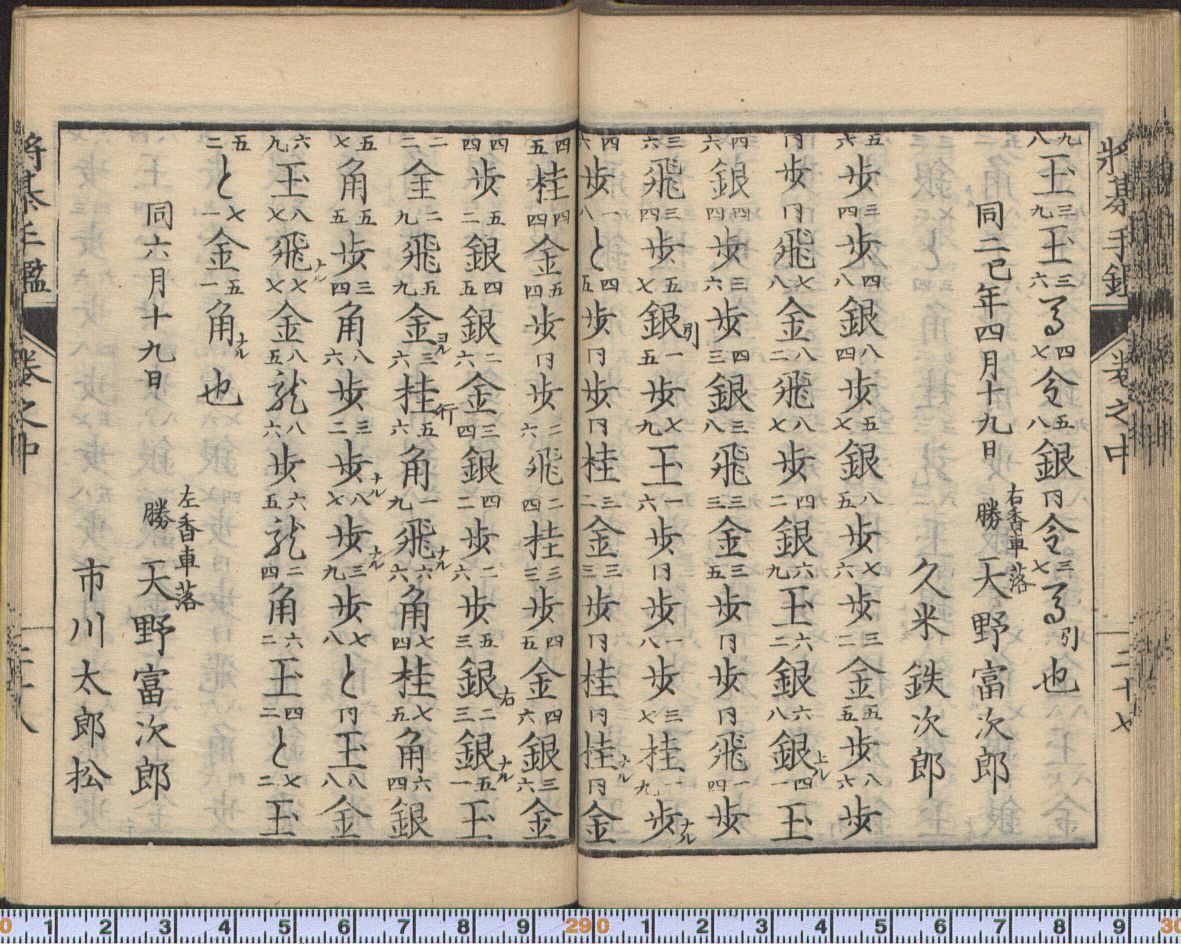 将棊手鑑 巻之中 二十七
九八玉三九玉三六馬四七令五八銀同令三七馬引也
同二巳年四月十九日 右香車落 勝 天野富次郎
久米鉄次郎
五六歩三四歩四八銀八四歩八五歩七六歩三二金五五歩八六歩
同歩同飛七八金八二飛八七歩銀六九玉六二銀六八銀上ル四一玉
四六銀四四歩三六歩四三銀三八飛三三金三五歩同歩同飛一四歩
三六飛三四歩五七銀引一五歩七九玉一六歩同歩一八歩三七桂一九歩ナル
四六歩一八と四五歩同歩同桂二三金三三歩同桂同桂ナル同金
四五桂四四金五四歩同歩二六飛二四桂三三歩四五金四六銀三六金
四四歩五二銀四五銀二六金三四銀四二歩二六歩五三銀右二三銀ナル五一玉
二二金二九飛五九金ヨル三六桂行五六角一九飛ナル六六角七四桂七五角六四銀
五七角五五歩三四角八六歩三二歩ナル八七歩ナル三九歩七八と同玉八八金
六九玉八七飛ナル七七金八五龍八六歩六五龍二四角六二玉四二と七二玉
五二と七一金五一角ナル也
同六月十九日 左香車落 勝 天野富次郎
市川太郎松
将棊手鑑 巻之中 二十八